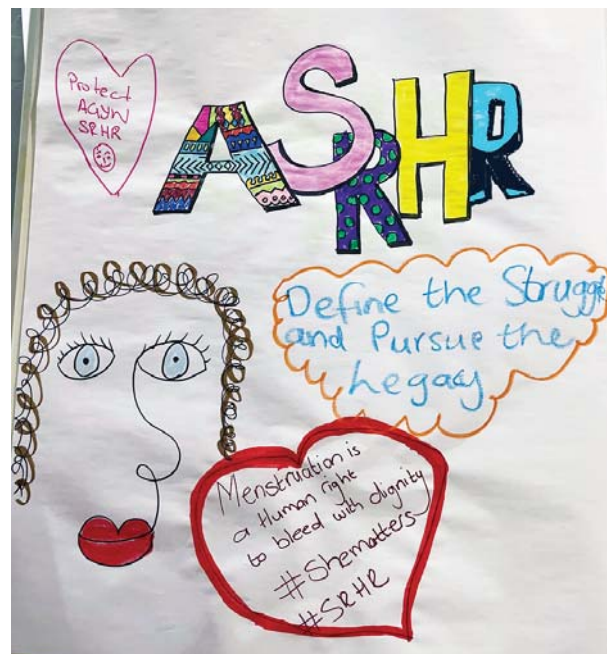 Protect
AGYW
SRHR
ASRHR
Define the Struggle
and Pursue the
Legacy
Menstruation is
a Human right
to bleed with dignity
#Shematters
#SRHR